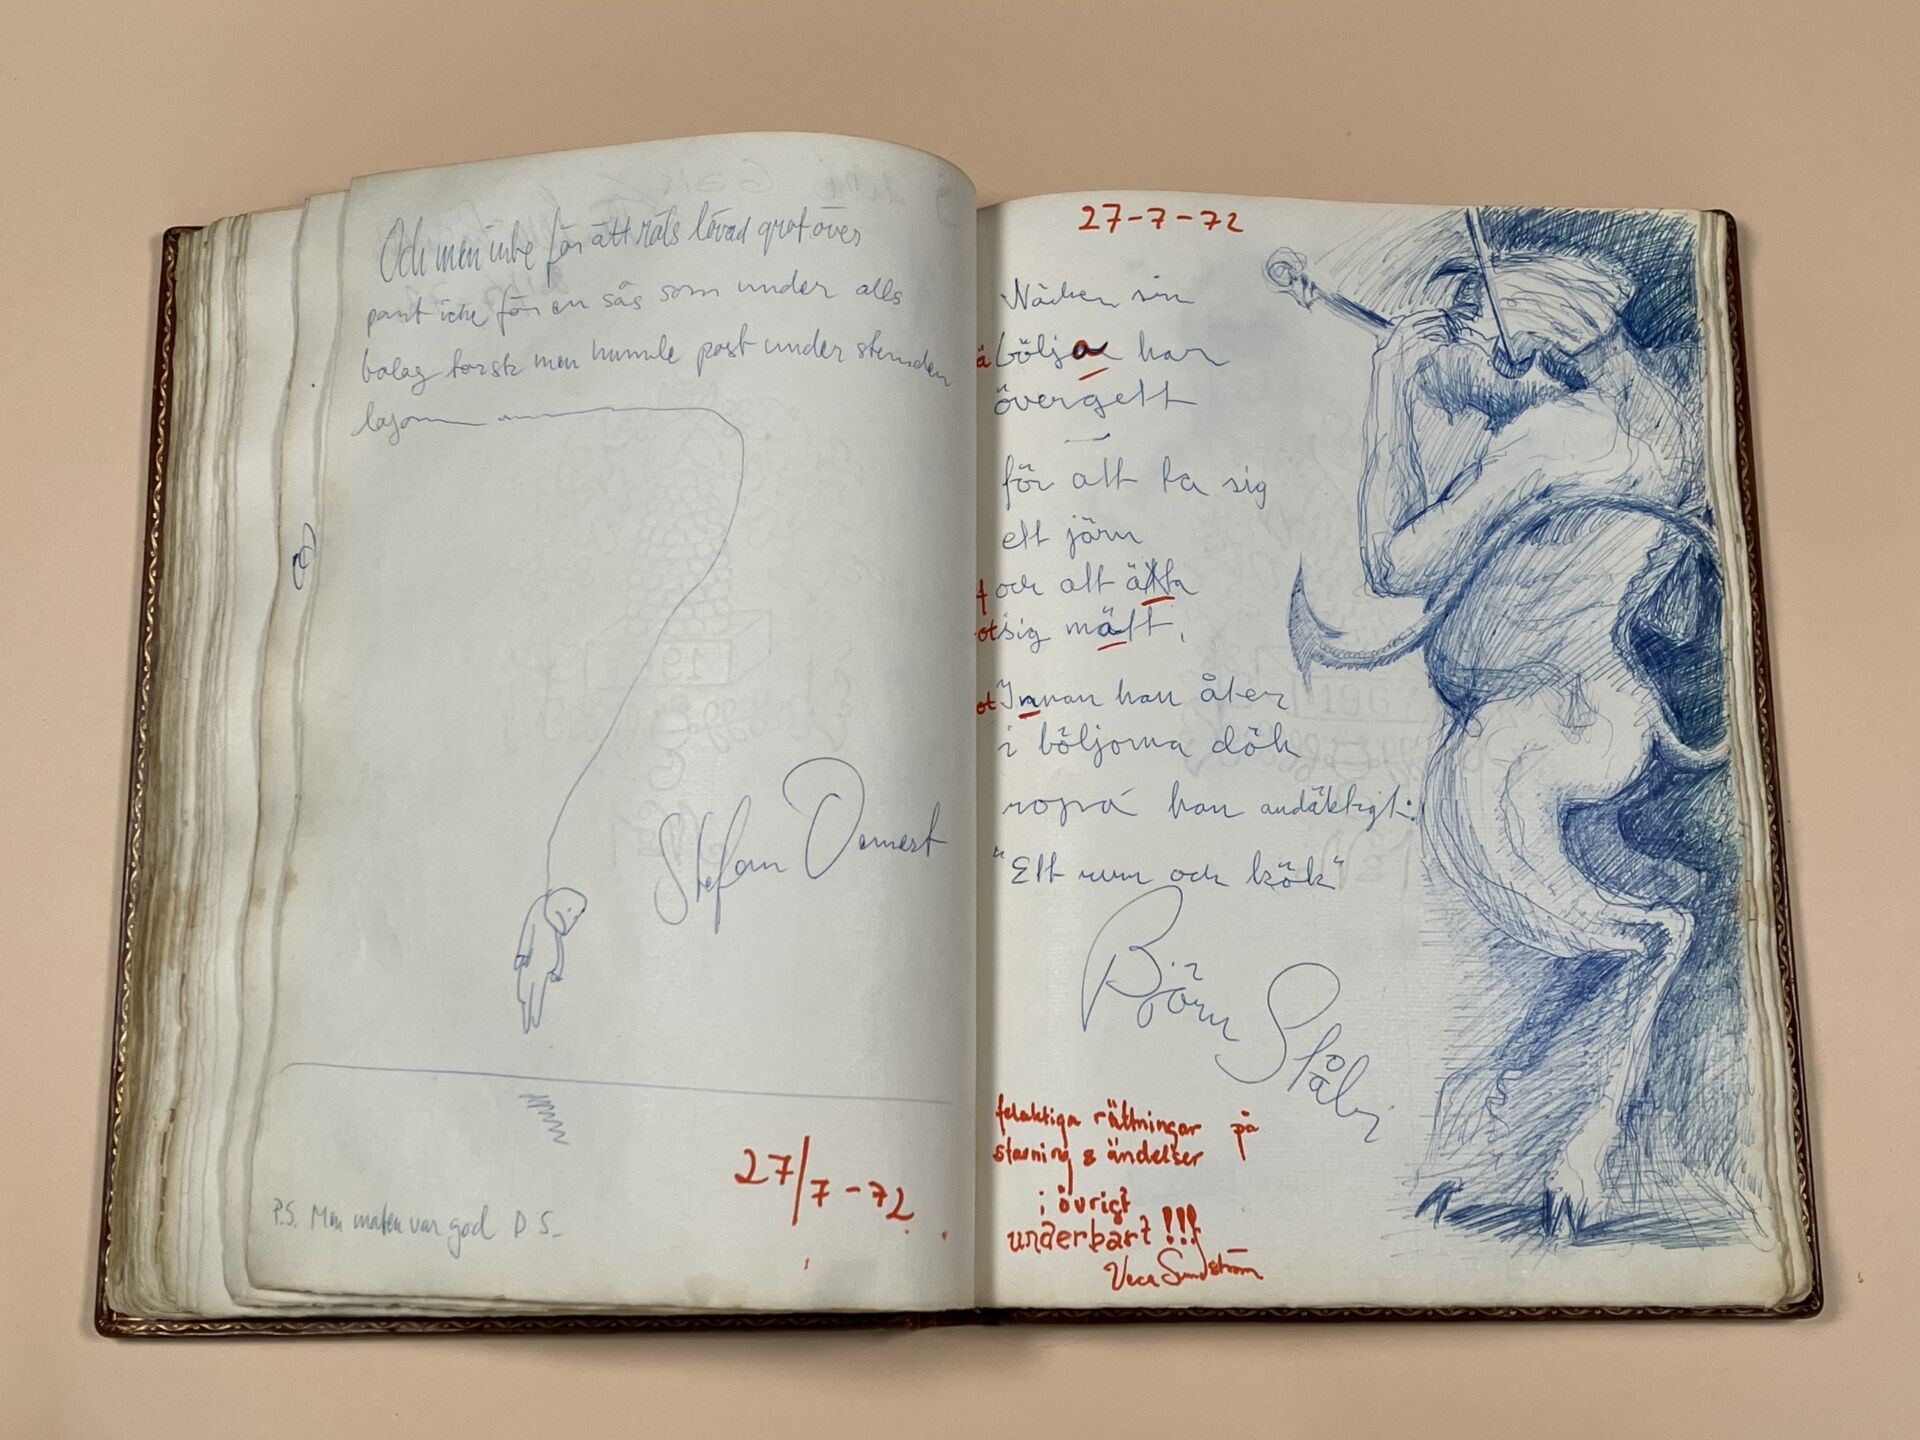 Och men inte för ätt råls lövad grot över
pant icke för en sås som under alls
balag torsk men humle past under stenden
lagom
Stefan Demert
27/7-72
P.S. Men maten var god D.S.
27-7-72
Näcken sin
ä bölja har
övergett
för att ta sig
ett järn
och att äta
ot sig mätt.
ot Innan han åter
i böljorna dök
ropa han andäktigt:
"Ett rum och kök"
Björn Ståbi
felaktiga rättningar på
stavning & ändelser
i övrigt
underbart!!!
Vera Sundström